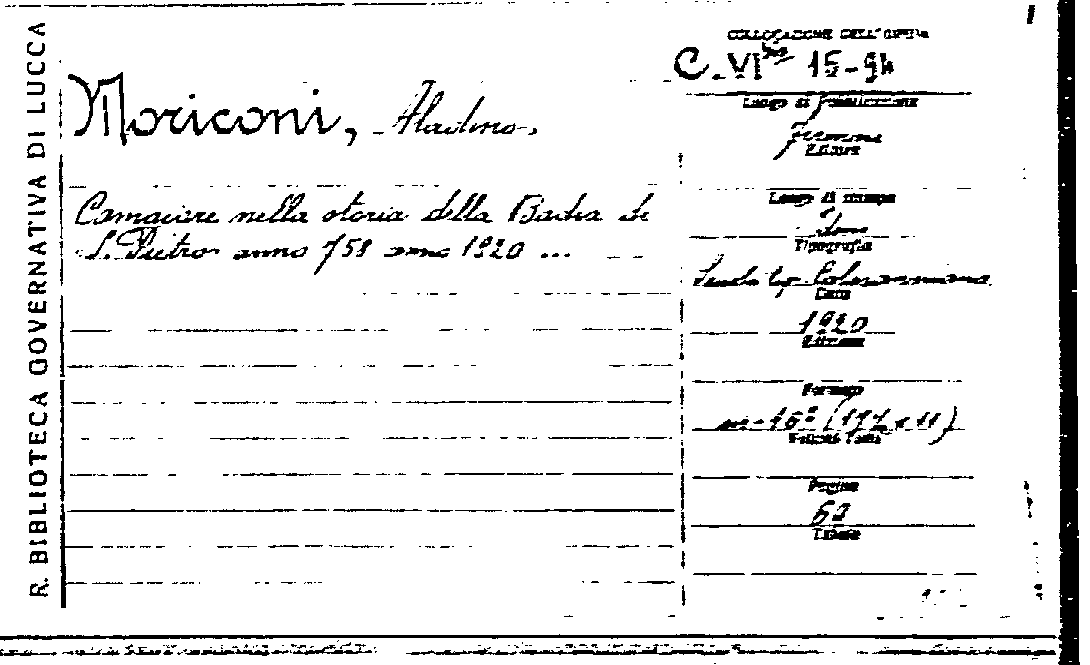 R. BIBLIOTECA GOVERNATIVA DI LUCCA
Moriconi, Aladino.
Camaiore nella storia della Badia di
S. Pietro anno 758 anno 1920 ...
COLLOCAZIONE DELL'OPERA
C. VI bis 15-94
Luogo di pubblicazione
Editore
Luogo di stampa
Tipografia
Data
1920
Edizione
Formato
in-16º
Pagine
62